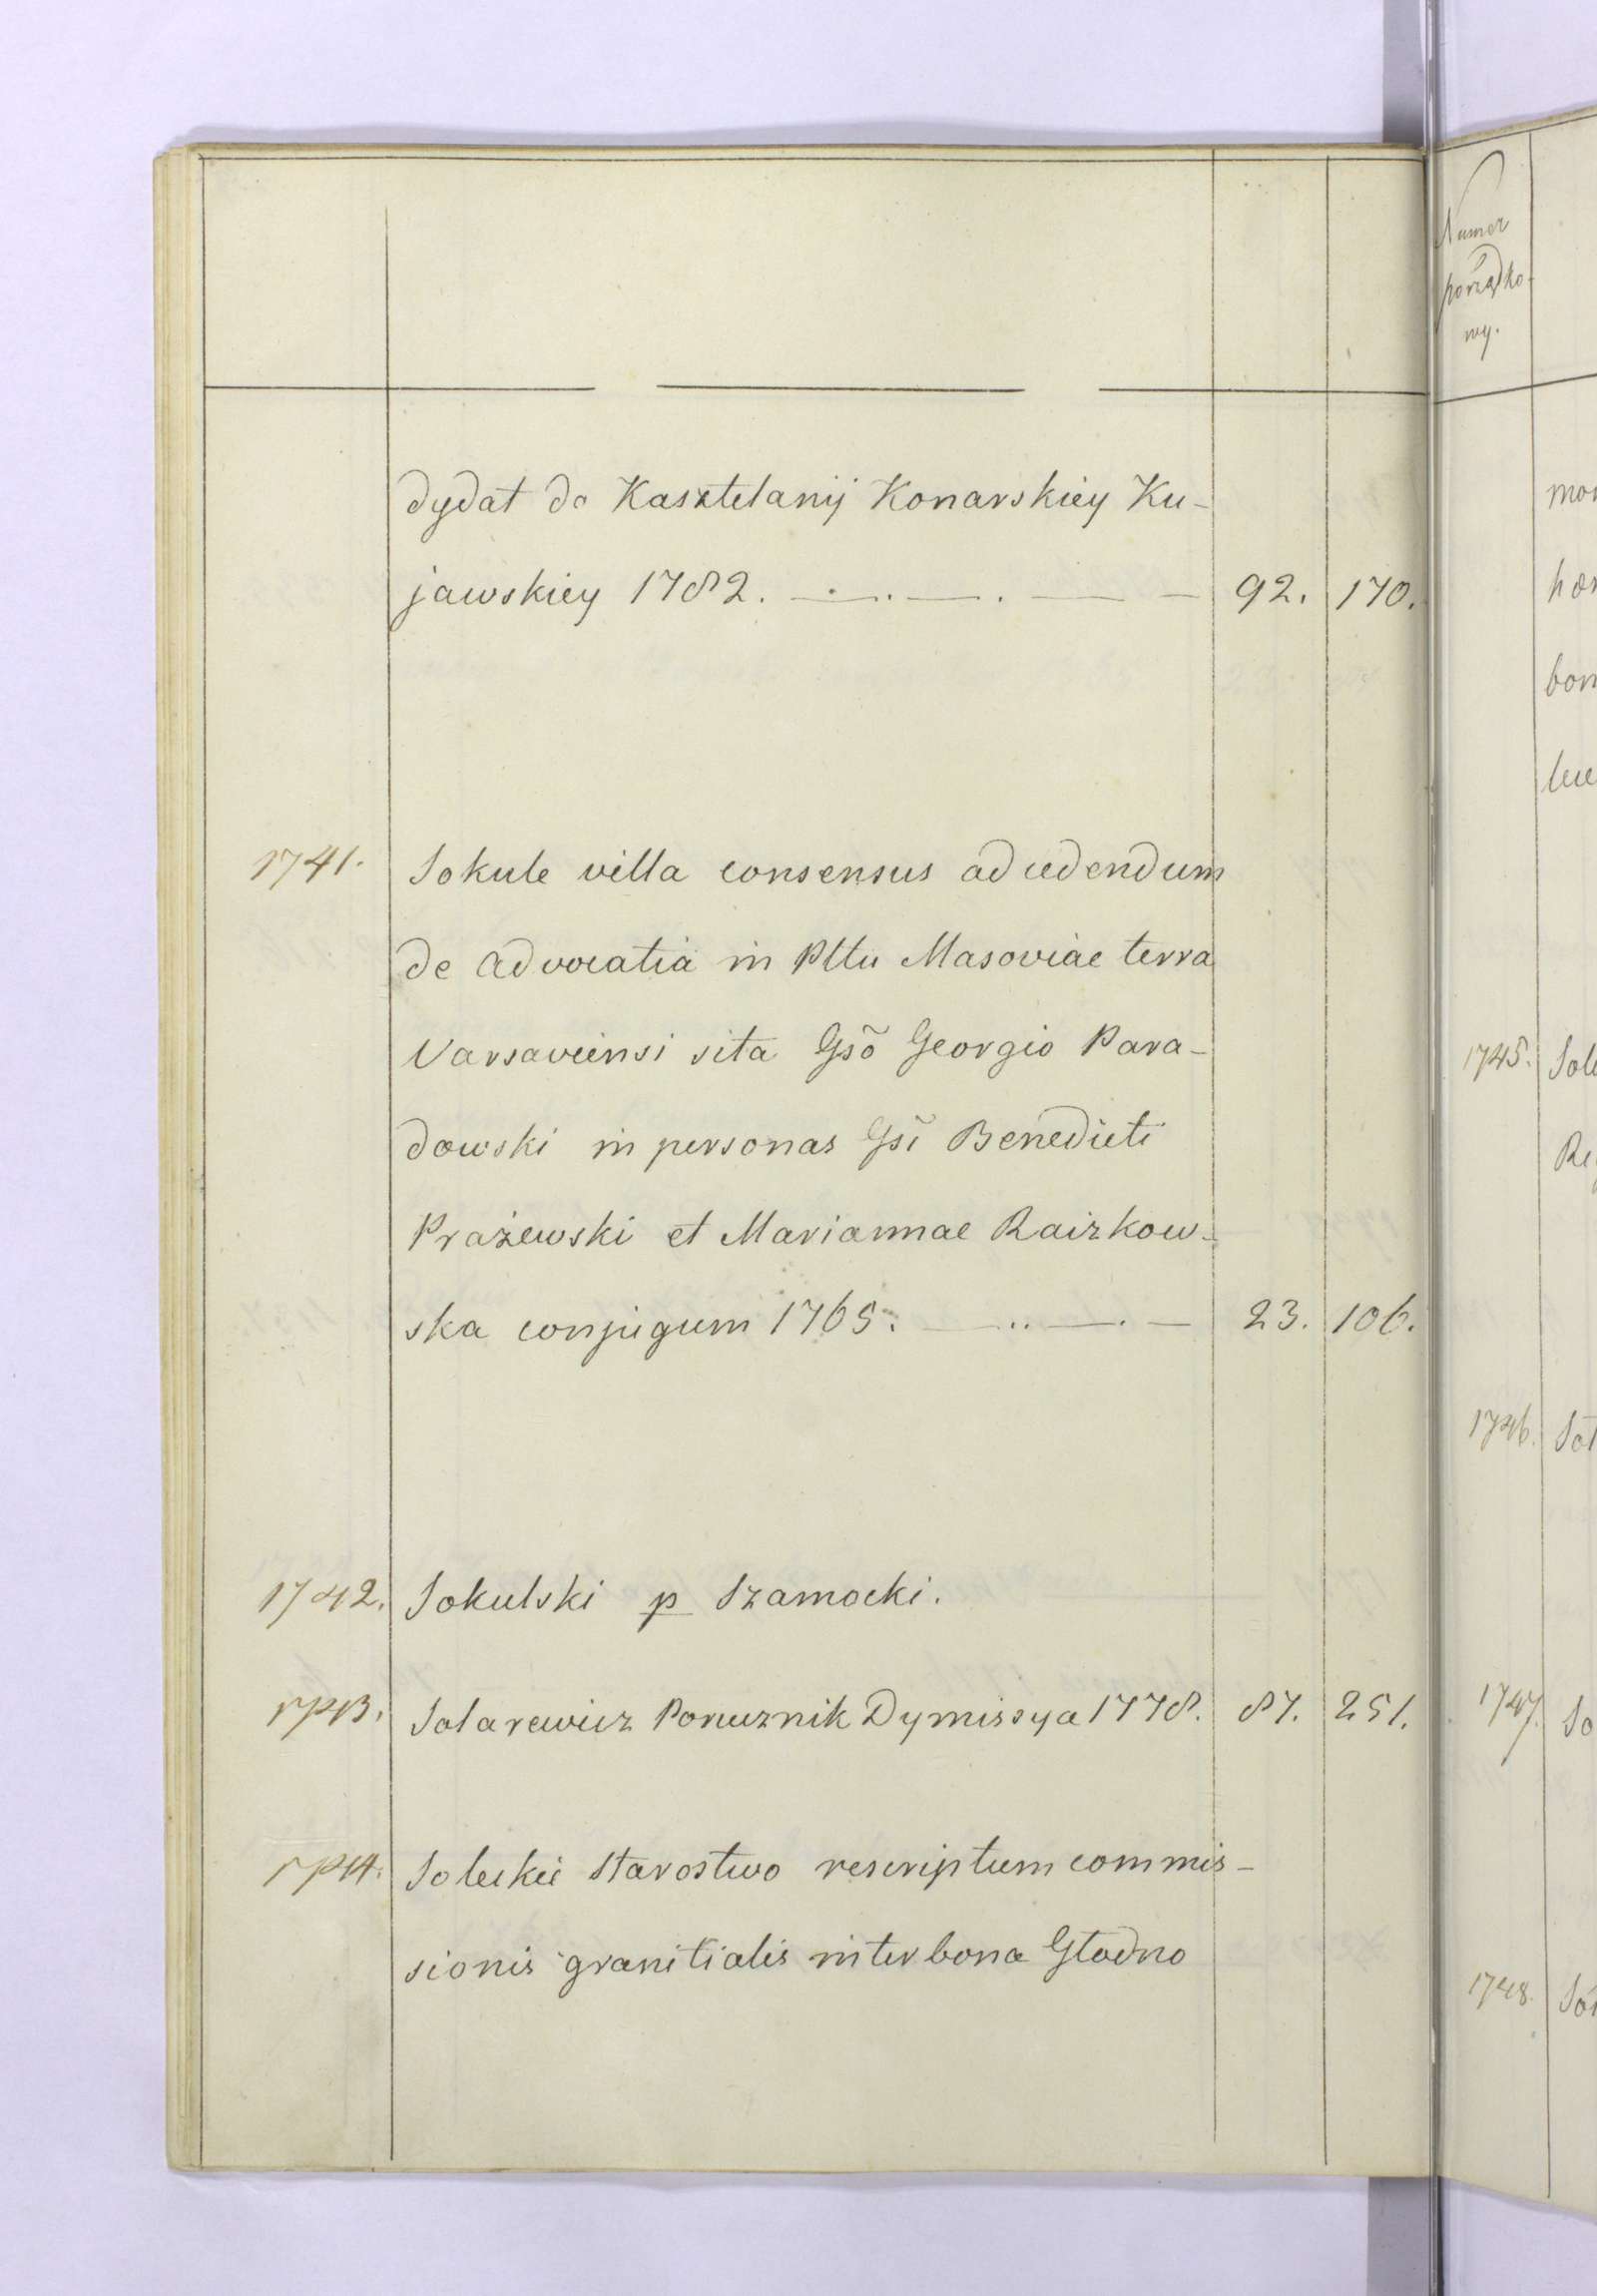 dydat do Kasztelanij Konarskiey Ku-
jawskiey 1782. 92. 170.
1741. Sokule villa consensus ad cedendum
de advocatia in Pltu Masoviae terra
Varsaviensi sita Gsõ Georgio Para-
dowski in personas Gsĩ Benedicti
Prażewski et Mariannae Raczkow-
ska conjugum 1765. 23. 106.
1742. Sokulski p Szamocki.
1743. Solarewicz Porucznik Dymissya 1778. 87. 251.
1744. Soleckie Starostwo rescriptum commis-
sionis granitialis inter bona Głodno
Numer
porządko-
wy.
1745.
1746.
1747.
1748.